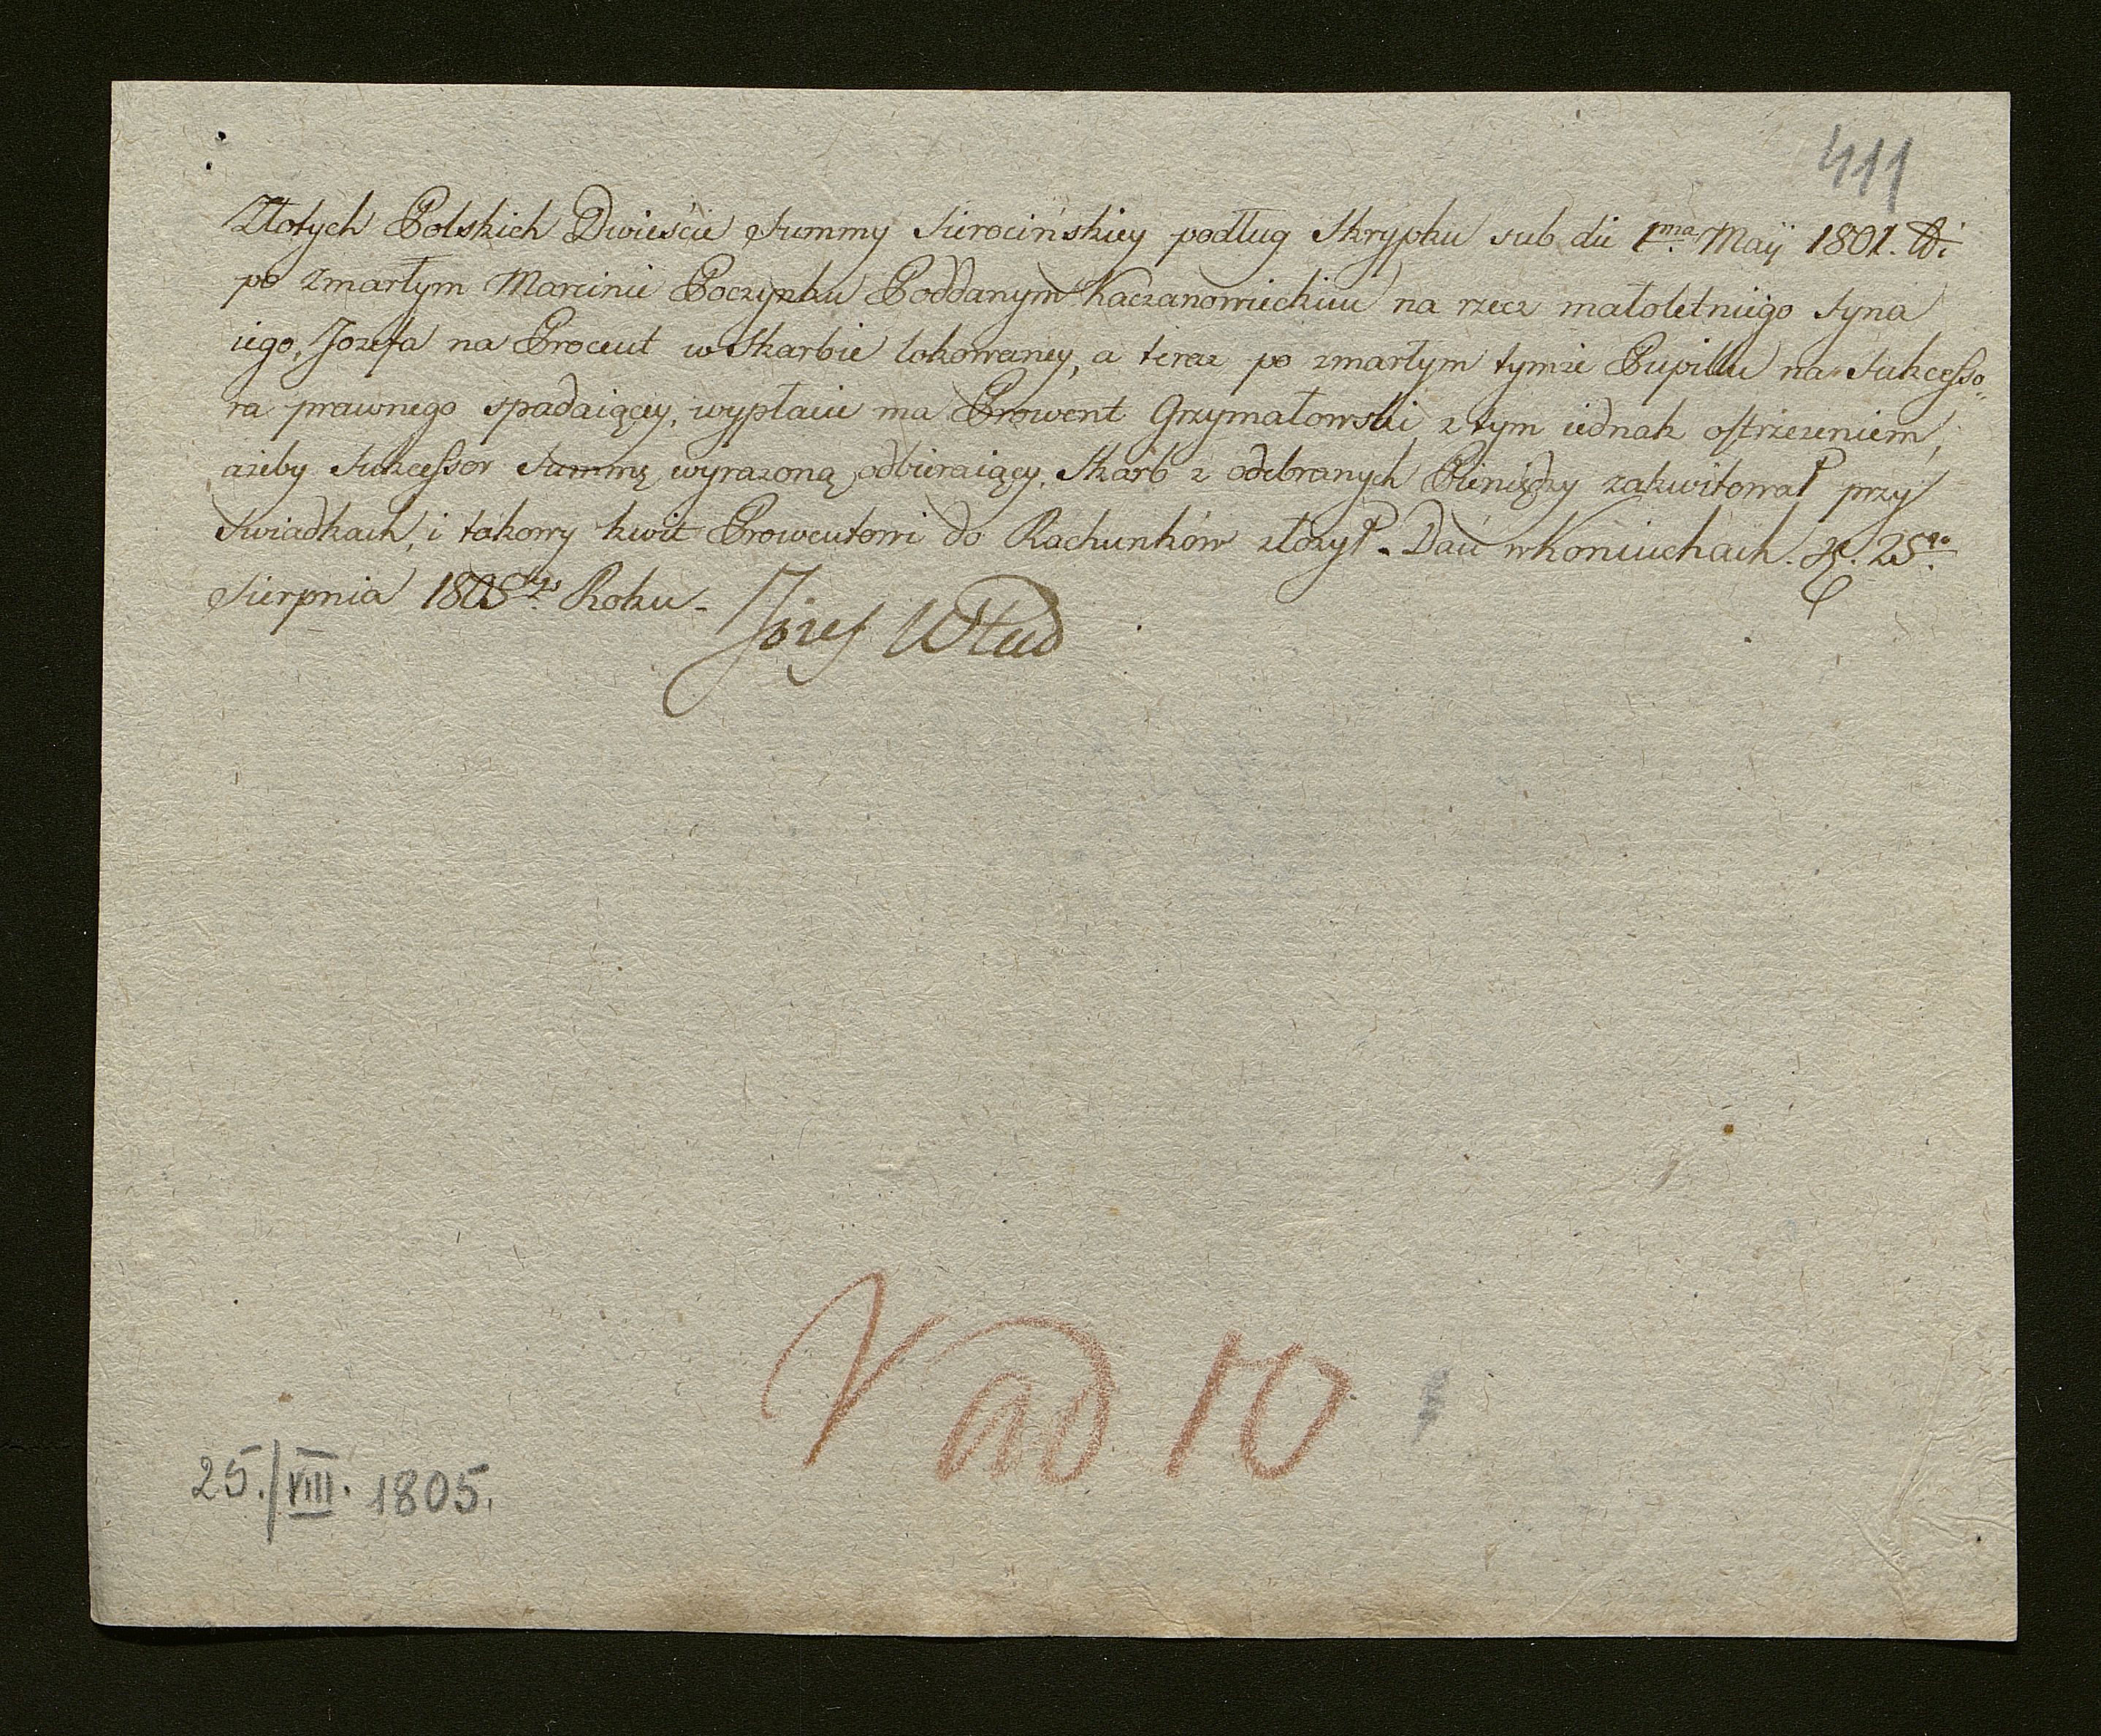 411
Złotych Polskich Dwieście Summy Sierocińskiey podług Skryptu sub die 1ma Maij 1801.
po zmarłym Marcinie Poczynku Poddanym Kaczanowieckim na rzecz małoletniego Syna
iego, Jozefa na Procent w Skarbie lokowaney, a teraz po zmarłym tymże Pupillu na Sukcesso„
ra prawnego spadaiącey, wypłacić ma Prowent Grzymałowski, z tym iednak ostrzezeniem,
ażeby Sukcessor Summę wyrazoną odbieraiący, Skarb z odebranych Pieniędzy zakwitował przy
Swiadkach, i takowy kwit Prowentowi do Rachunków złożył. Dań w Koniuchach. 25go
Sierpnia 1805go Roku
Józef
V ad 10
25./VIII. 1805.